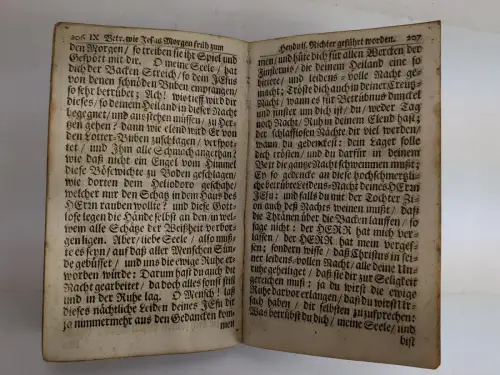 206 IX Betr. wie Jesus Morgen früh zum
den Morgen/ so treiben sie ihr Spiel und
Gespött mit dir. O meine Seele/ hat
dich der Backen Streich/ so dein JEsus
von denen schnöden Buben empfangen/
so sehr betrübet; Ach/ wie tieff wird dir
dieses/ so deinem Heiland in dieser Nacht
begegnet/ und ausstehen müssen/ zu Her-
tzen gehen? dann wie elend wird Er von
den Lotter-Buben zuschlagen/ verspot-
tet/ und Ihm alle Schmach angethan/
wie daß nicht ein Engel vom Himmel
diese Bösewichte zu Boden geschlagen/
wie dorten dem Heliodoro geschahe/
welcher nur den Schatz in dem Haus des
HErrn rauben wollte? und diese Gott-
lose legen die Hände selbst an den/ in wel-
wem alle Schätze der Weißheit verbor-
gen ligen. Aber/ liebe Seele/ also muß-
te es seyn/ auf daß aller Menschen Sün-
de gebüsset/ und uns die ewige Ruhe er-
worben würde: Darum hast du auch die
Nacht gearbeitet/ da doch alles sonst still
und in der Ruhe lag. O Mensch! laß
dieses nächtliche Leiden deines JEsu dir
ja nimmermehr aus den Gedancken kom-
men
Heydnis. Richter geführt worden. 207
men/ und hüte dich für allen Wercken der
Finsternus/ die deinem Heiland eine so
bittere/ und leidens-volle Nacht ge-
macht; Tröste dich auch in deiner Creutz-
Nacht/ wann es für Betrübnus dunckel
und finster um dich ist/ du/ weder Tag
noch Nacht/ Ruh in deinem Elend hast;
der schlafflosen Nächte dir viel werden/
wann du gedenckest: dein Lager solle
dich trösten/ und du darfür in deinem
Bett die gantze Nacht schwemmen mußt;
Ey so gedencke an diese hochschmertzli-
che betrübte Leidens-Nacht deines HErrn
JEsu: und falls du mit der Tochter Zi-
on auch deß Nachts weinen mußt/ daß
die Thränen über die Backen lauffen/ so
sage nicht: der HERR hat mich ver-
lassen/ der HERR hat mein verges-
sen; sondern wisse/ daß Christus in sei-
ner leidens-vollen Nacht/ alle deine Un-
ruhe geheiliget/ daß sie dir zur Seligkeit
gedeyen muß; ja du wirst die ewige
Ruhe darvor erlangen/ daß du wirst Ur-
sach haben/ dir selbsten zuzusprechen:
Was betrübst du dich/ meine Seele/ und
bist